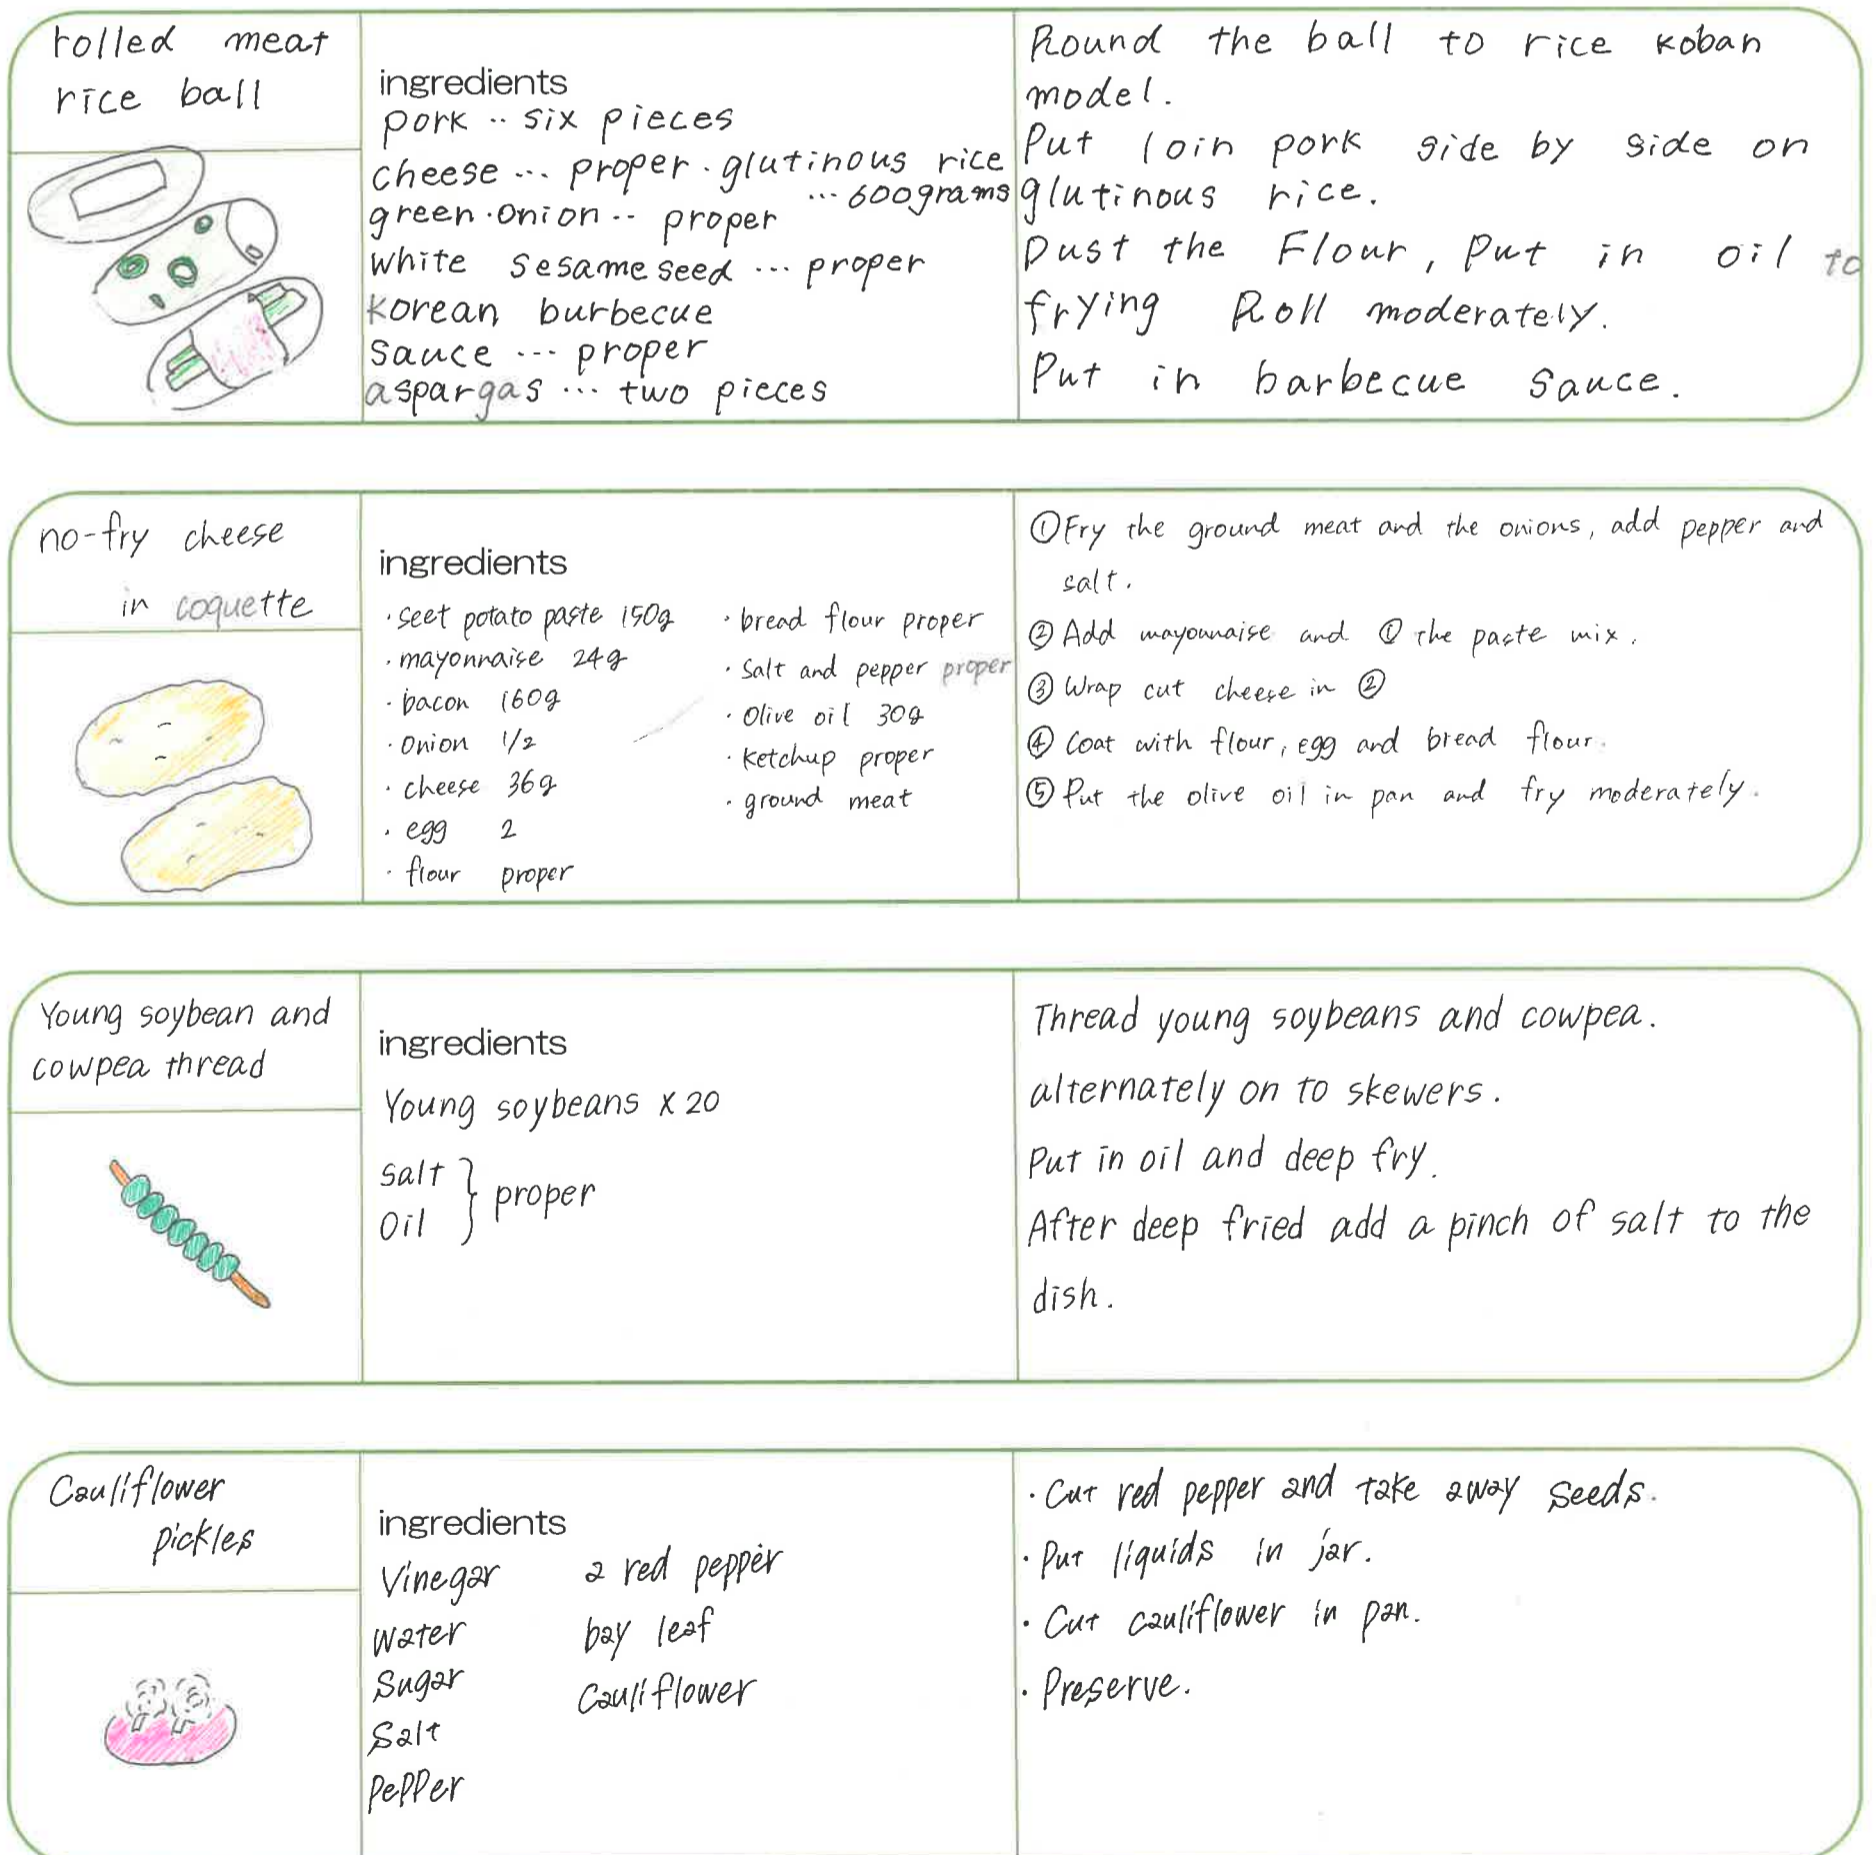 rolled meat
rice ball
ingredients
pork ‥ six pieces
cheese … proper · glutinous rice
… 600grams
green·onion ‥ proper
white sesame seed … proper
korean burbecue
sauce … proper
aspargas … two pieces
Round the ball to rice koban
model.
Put loin pork side by side on
glutinous rice.
Dust the Flour, Put in oil to
frying Roll moderately.
Put in barbecue sauce.
no-fry cheese
in coquette
ingredients
·seet potato paste 150g
·mayonnaise 24g
·bacon 160g
·onion 1/2
·cheese 36g
·egg 2
·flour proper
·bread flour proper
·Salt and pepper proper
·Olive oil 30g
·ketchup proper
·ground meat
①Fry the ground meat and the onions, add pepper and
salt.
②Add mayounaise and ① the paste mix.
③Wrap cut cheese in ②
④Coat with flour, egg and bread flour.
⑤Put the olive oil in pan and fry moderately.
Young soybean and
cowpea thread
ingredients
Young soybeans x 20
salt
oil
} proper
Thread young soybeans and cowpea.
alternately on to skewers.
Put in oil and deep fry.
After deep fried add a pinch of salt to the
dish.
Cauliflower
pickles
ingredients
Vinegar
water
Sugar
Salt
PePPer
a red pepper
bay leaf
Cauliflower
·Cut red pepper and take away seeds.
·Put liquids in jar.
·Cut cauliflower in pan.
·Preserve.